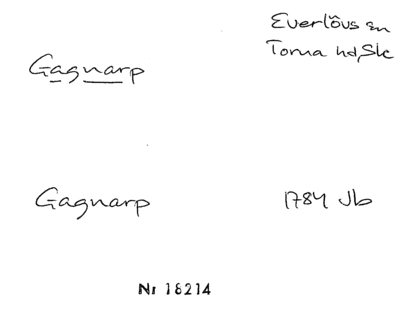 Everlövs sn
Torna hd, Sk
Gagnarp
Gagnarp
1784 Jb
Nr 18214